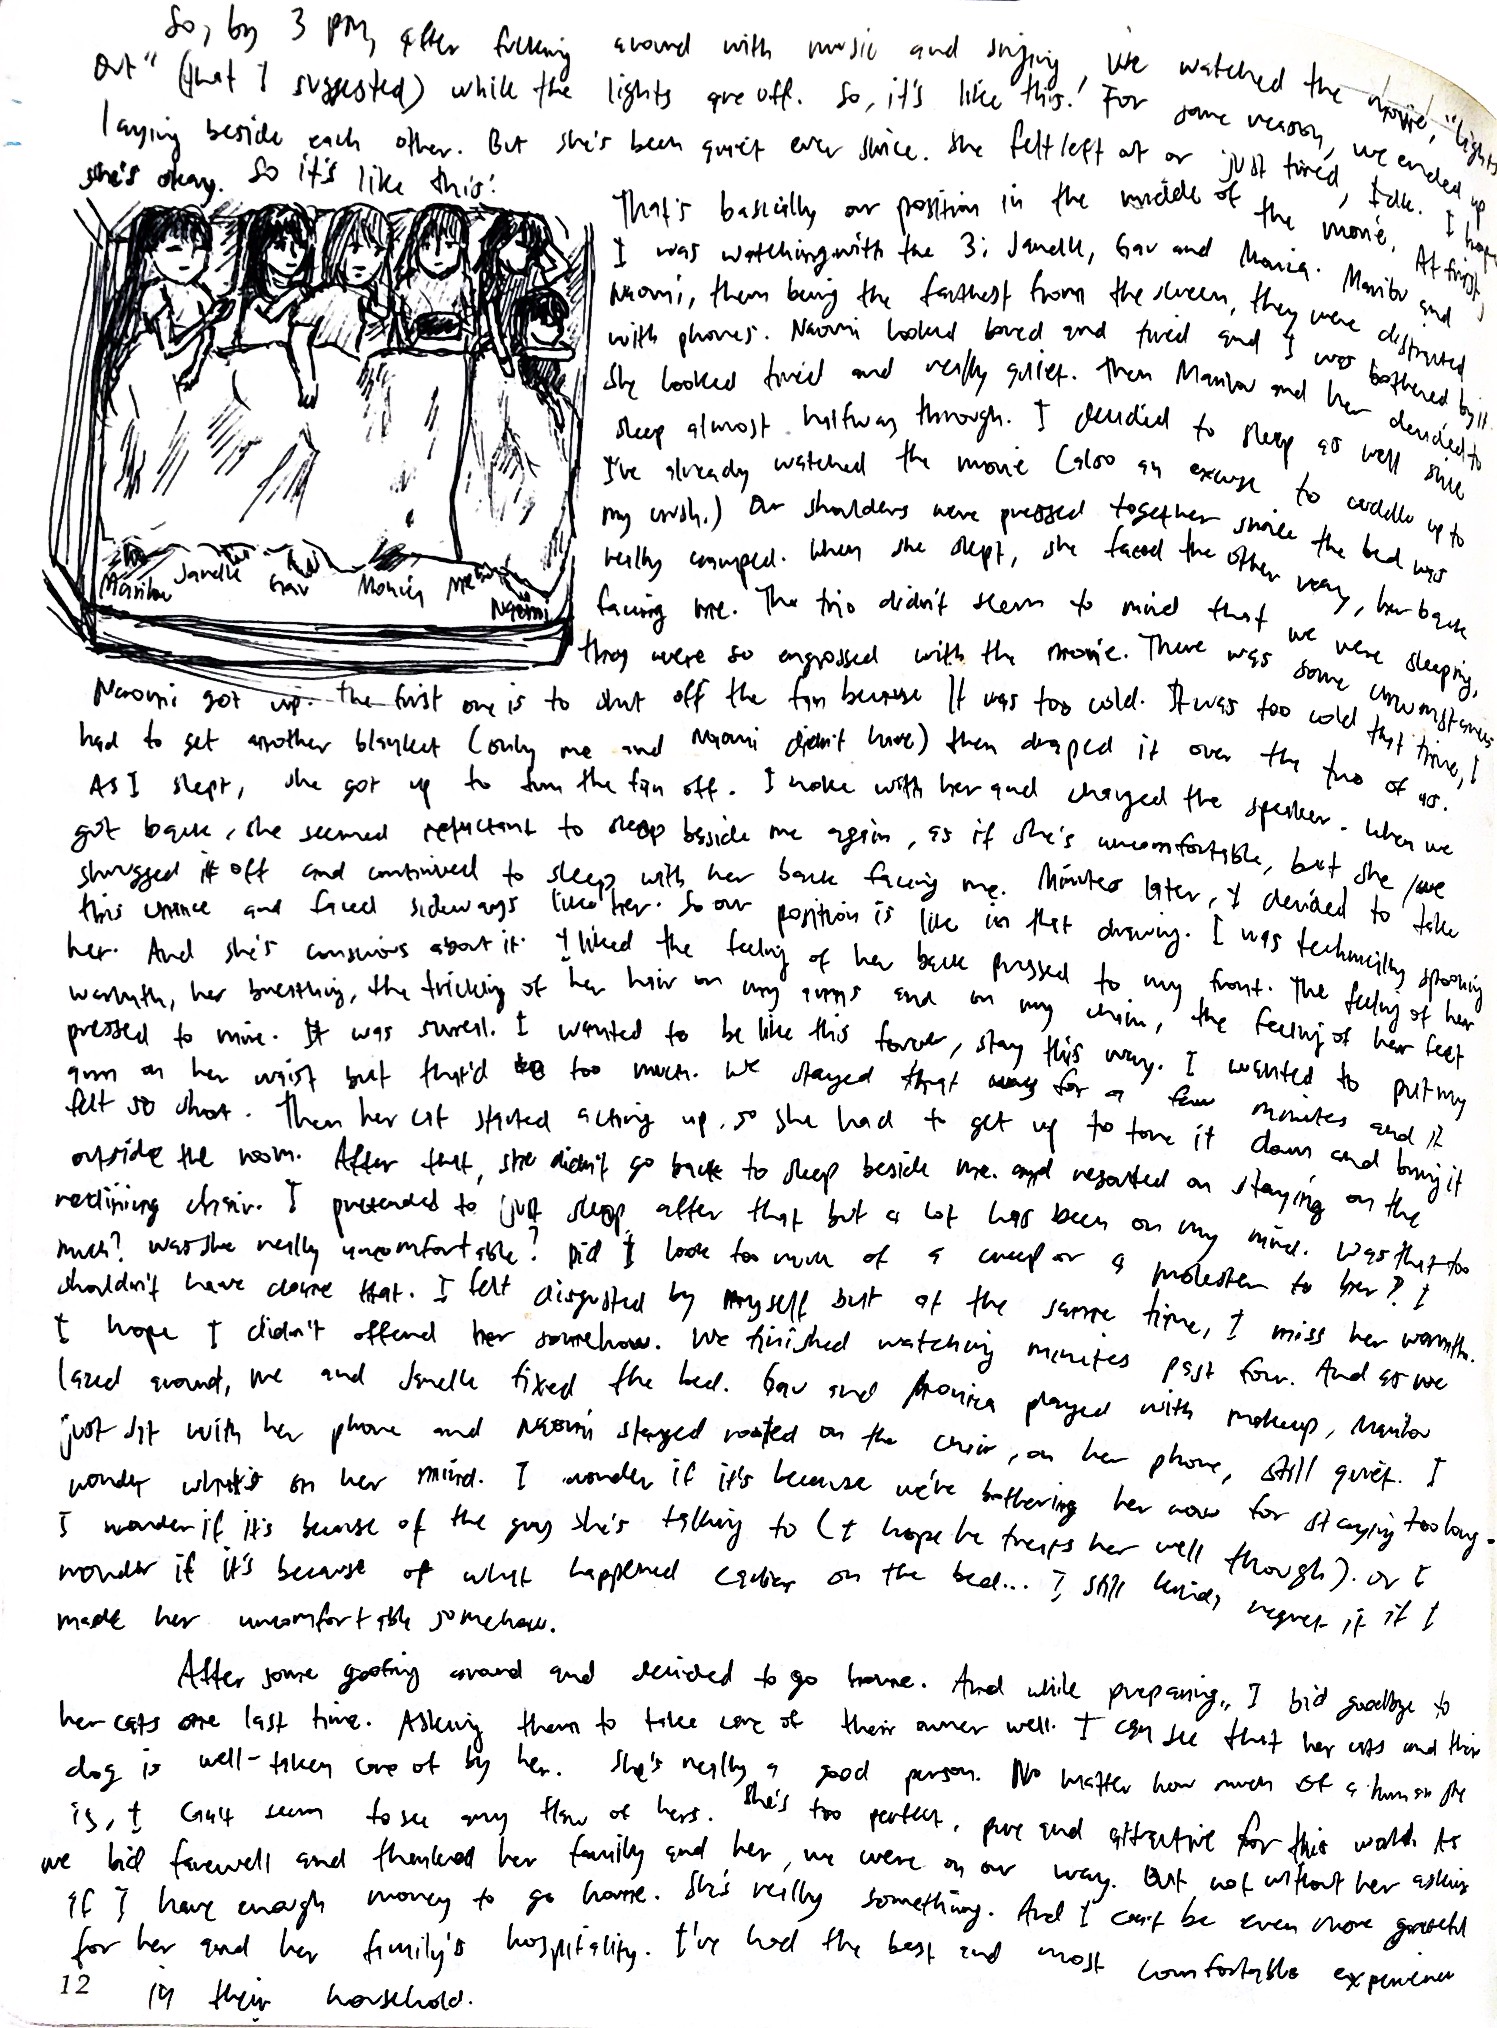 So, by 3 pm, after fucking around with music and singing, we watched the movie, "Lights
Out" (that I suggested) while the lights are off. So, it's like this: For some reason, we ended up
laying beside each other. But she's been quiet ever since. She felt left out or just tired, Idk. I hope
she's okay. So it's like this:
That's basically our position in the middle of the movie. At first,
I was watching with the 3: Janelle, Gav and Monica. Marilou and
Naomi, them being the farthest from the screen, they were distracted
with phones. Naomi looked bored and tired and I was bothered by it.
She looked tired and really quiet. Then Marilou and her decided to
sleep almost halfway through. I decided to sleep as well since
I've already watched the movie (also an excuse to cuddle up to
my crush.) Our shoulders were pressed together since the bed was
really cramped. When she slept, she faced the other way, her back
facing me. The trio didn't seem to mind that we were sleeping,
they were so engrossed with the movie. There was some circumstances
Marilou Janelle Gav Monica Me Naomi
Naomi got up. The first one is to shut off the fan because it was too cold. It was too cold that time, I
had to get another blanket (only me and Naomi didn't have) then draped it over the two of us.
As I slept, she got up to turn the fan off. I woke with her and charged the speaker. When we
got back, she seemed reluctant to sleep beside me again, as if she's uncomfortable, but she
shrugged it off and continued to sleep with her back facing me. Minutes later, I decided to take
this chance and faced sideways like her. So our position is like in that drawing. I was technically spooning
her. And she's conscious about it. I liked the feeling of her back pressed to my front. The feeling of her
warmth, her breathing, the tricking of her hair on my arms and on my chin, the feeling of her feet
pressed to mine. It was surreal. I wanted to be like this forever, stay this way. I wanted to put my
arm on her waist but that'd be too much. We stayed that way for a few minutes and it
felt so short. Then her cat started acting up, so she had to get up to tone it down and bring it
outside the room. After that, she didn't go back to sleep beside me. and resorted on staying on the
reclining chair. I pretended to just sleep after that but a lot has been on my mind. Was that too
much? was she really uncomfortable? Did I look too much of a creep or a molester to her? I
shouldn't have done that. I felt disgusted by myself but at the same time, I miss her warmth.
I hope I didn't offend her somehow. We finished watching minutes past four. And as we
lazed around, me and Janelle fixed the bed. Gav and Monica played with makeup, Marilou
just sit with her phone and Naomi stayed rooted on the chair, on her phone, still quiet. I
wonder what's on her mind. I wonder if it's because we're bothering her now for staying too long.
I wonder if it's because of the guy she's talking to (I hope he treats her well though). or I
wonder if it's because of what happened earlier on the bed... I still kinda regret it if I
made her uncomfortable somehow.
After some goofing around and decided to go home. And while preparing, I bid goodbye to
her cats one last time. Asking them to take care of their owner well. I can see that her cats and their
dog is well-taken care of by her. She's really a good person. No matter how much of a human she
is, I can't seem to see any flaw of hers. She's too perfect, pure and attractive for this world. As
we bid farewell and thanked her family and her, we were on our way. But not without her asking
if I have enough money to go home. She's really something. And I can't be even more grateful
for her and her family's hospitality. I've had the best and most comfortable experience
in their household.
12